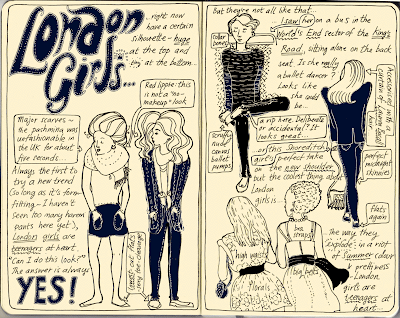 London
Girls...
...right now
have a certain
silhouette - huge
at the top and
tiny at the bottom...
Red lippie: this
is not a "no-
makeup" look
Major scarves -
the pashmina was
unfashionable in
the UK for about
five seconds...
Always the first to
try a new trend
(so long as it's form-
fitting - I haven't
seen too many harem
pants here yet),
London girls are
teenagers at heart.
"Can I do this look?"
The answer is always
YES!
But they're not all like that...
I saw her on a bus in the
World's End sector of the King's
Road, sitting alone on the back
seat. Is she really
a ballet dancer?
Looks like
she could
be...
roller
boney
Scruffy
nude
canvas
ballet
pumps
a rip here. Deliberate
or accidental? It
looks great...
...or this Shoreditch
girl's perfect take
on the now shoulder
but the coolest thing about
London
girls is...
Accessorise with a
curtain of shampoo-ad
hair
perfect
midnight
skinnies
Flats
again
thigh waists
florals
bra
straps
big belts
...the way they
explode in a riot
of Summer colour
& prettyness
- London
girls are
teenagers at
heart...